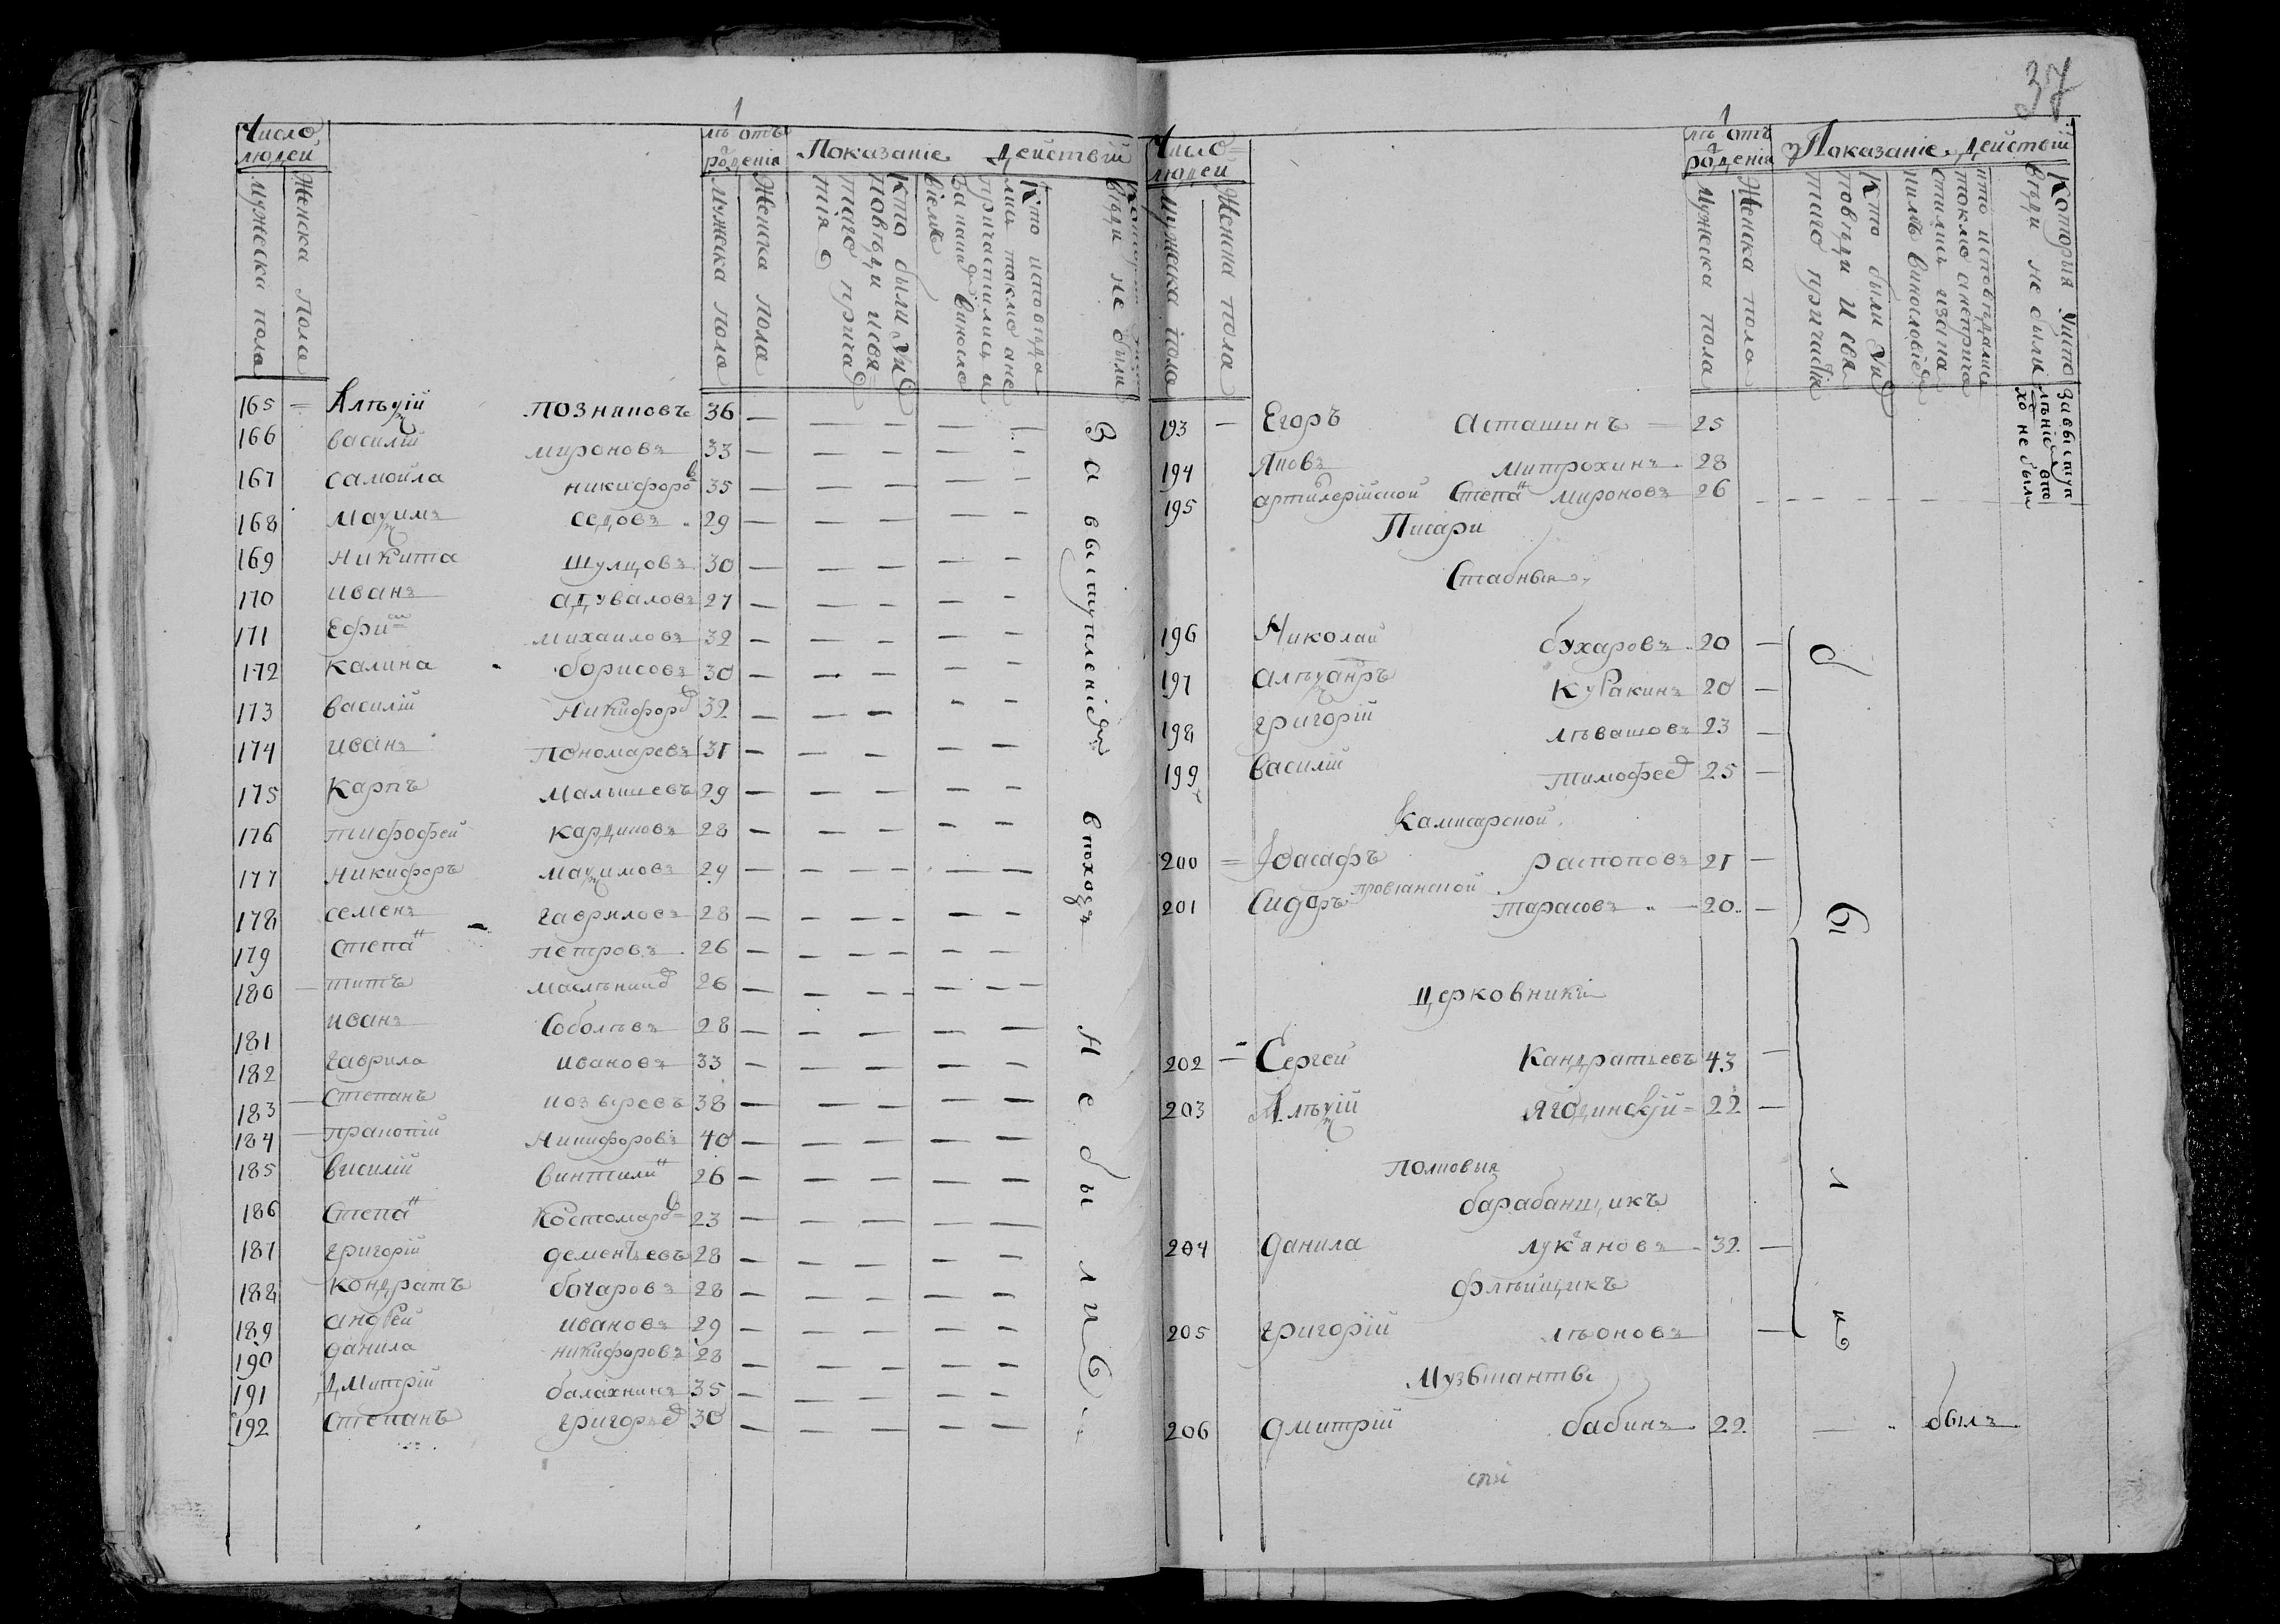 1
Число людей
лѣ отъ роденія
Показаніе действій
мужеска пола
Женска пола
мужеска пола
Женска пола
Кто были у испо
повѣди и свя
таго прича
тія
Кто исповѣда
лись токмо а не
причастились и
за каимъ виносло
віемъ
вѣди не были
165 Алѣѯій Познаковъ 36
166 василій мироновъ 33
167 самойла никифоровъ 35
168 маѯимъ седовъ 29
169 никита шулцовъ 30
170 иванъ адуваловъ 27
171 Ефимъ михаиловъ 32
172 калина борисовъ 30
173 василій никифоро 32
174 иванъ пономаревъ 31
175 карпъ малышевъ 29
176 тифофей кардиповъ 28
177 никифоръ маѯимовъ 29
178 семенъ гавриловъ 28
179 степанъ петровъ 26
180 титъ маслѣнико 26
181 иванъ соболѣвъ 28
182 гаврила ивановъ 33
183 степанъ козыревъ 38
184 пракопій никифоровъ 40
185 василій винтилинъ 26
186 степанъ костомаровъ 23
187 григорій дементьевъ 28
188 кондратъ бочаровъ 28
189 андрей ивановъ 29
190 данила никифоровъ 28
191 дмитрій балахнинъ 35
192 степанъ григорье 30
За выступленіемъ в походъ не были
37
1
Число людей
лѣ отъ роденія
Показаніе действій
мужеска пола
Женска пола
мужеска пола
Женска пола
Кто были у испо
повѣди и свя
таго причастія
кто исповѣдались
токмо а неприча
стились и за ка
кимъ винословіе
Которыя у испо
вѣди не были
193 Егоръ Асташинъ 25
194 Яковъ митрохинъ 28
195 артилерійской Степанъ мироновъ 26
За выступ
лѣніемъ в по
хо не были
Писари
Стабныя
196 Николай бухаровъ 20
197 алѣѯандръ куракинъ 20
198 григорій лѣвашовъ 23
199 василій тимофее 25
Камисарской
200 Іоасафъ распоповъ 21
провіанской
201 Сидоръ тарасовъ 20
Церковники
202 Сергей Кандратьевъ 43
203 Алѣѯій Ягодинскій 22
полковыя
барабанщикъ
204 данила лукьяновъ 32
флѣйщикъ
205 григорій лѣоновъ
Музыканты
206 дмитрій бабинъ 22 былъ
б ы л и